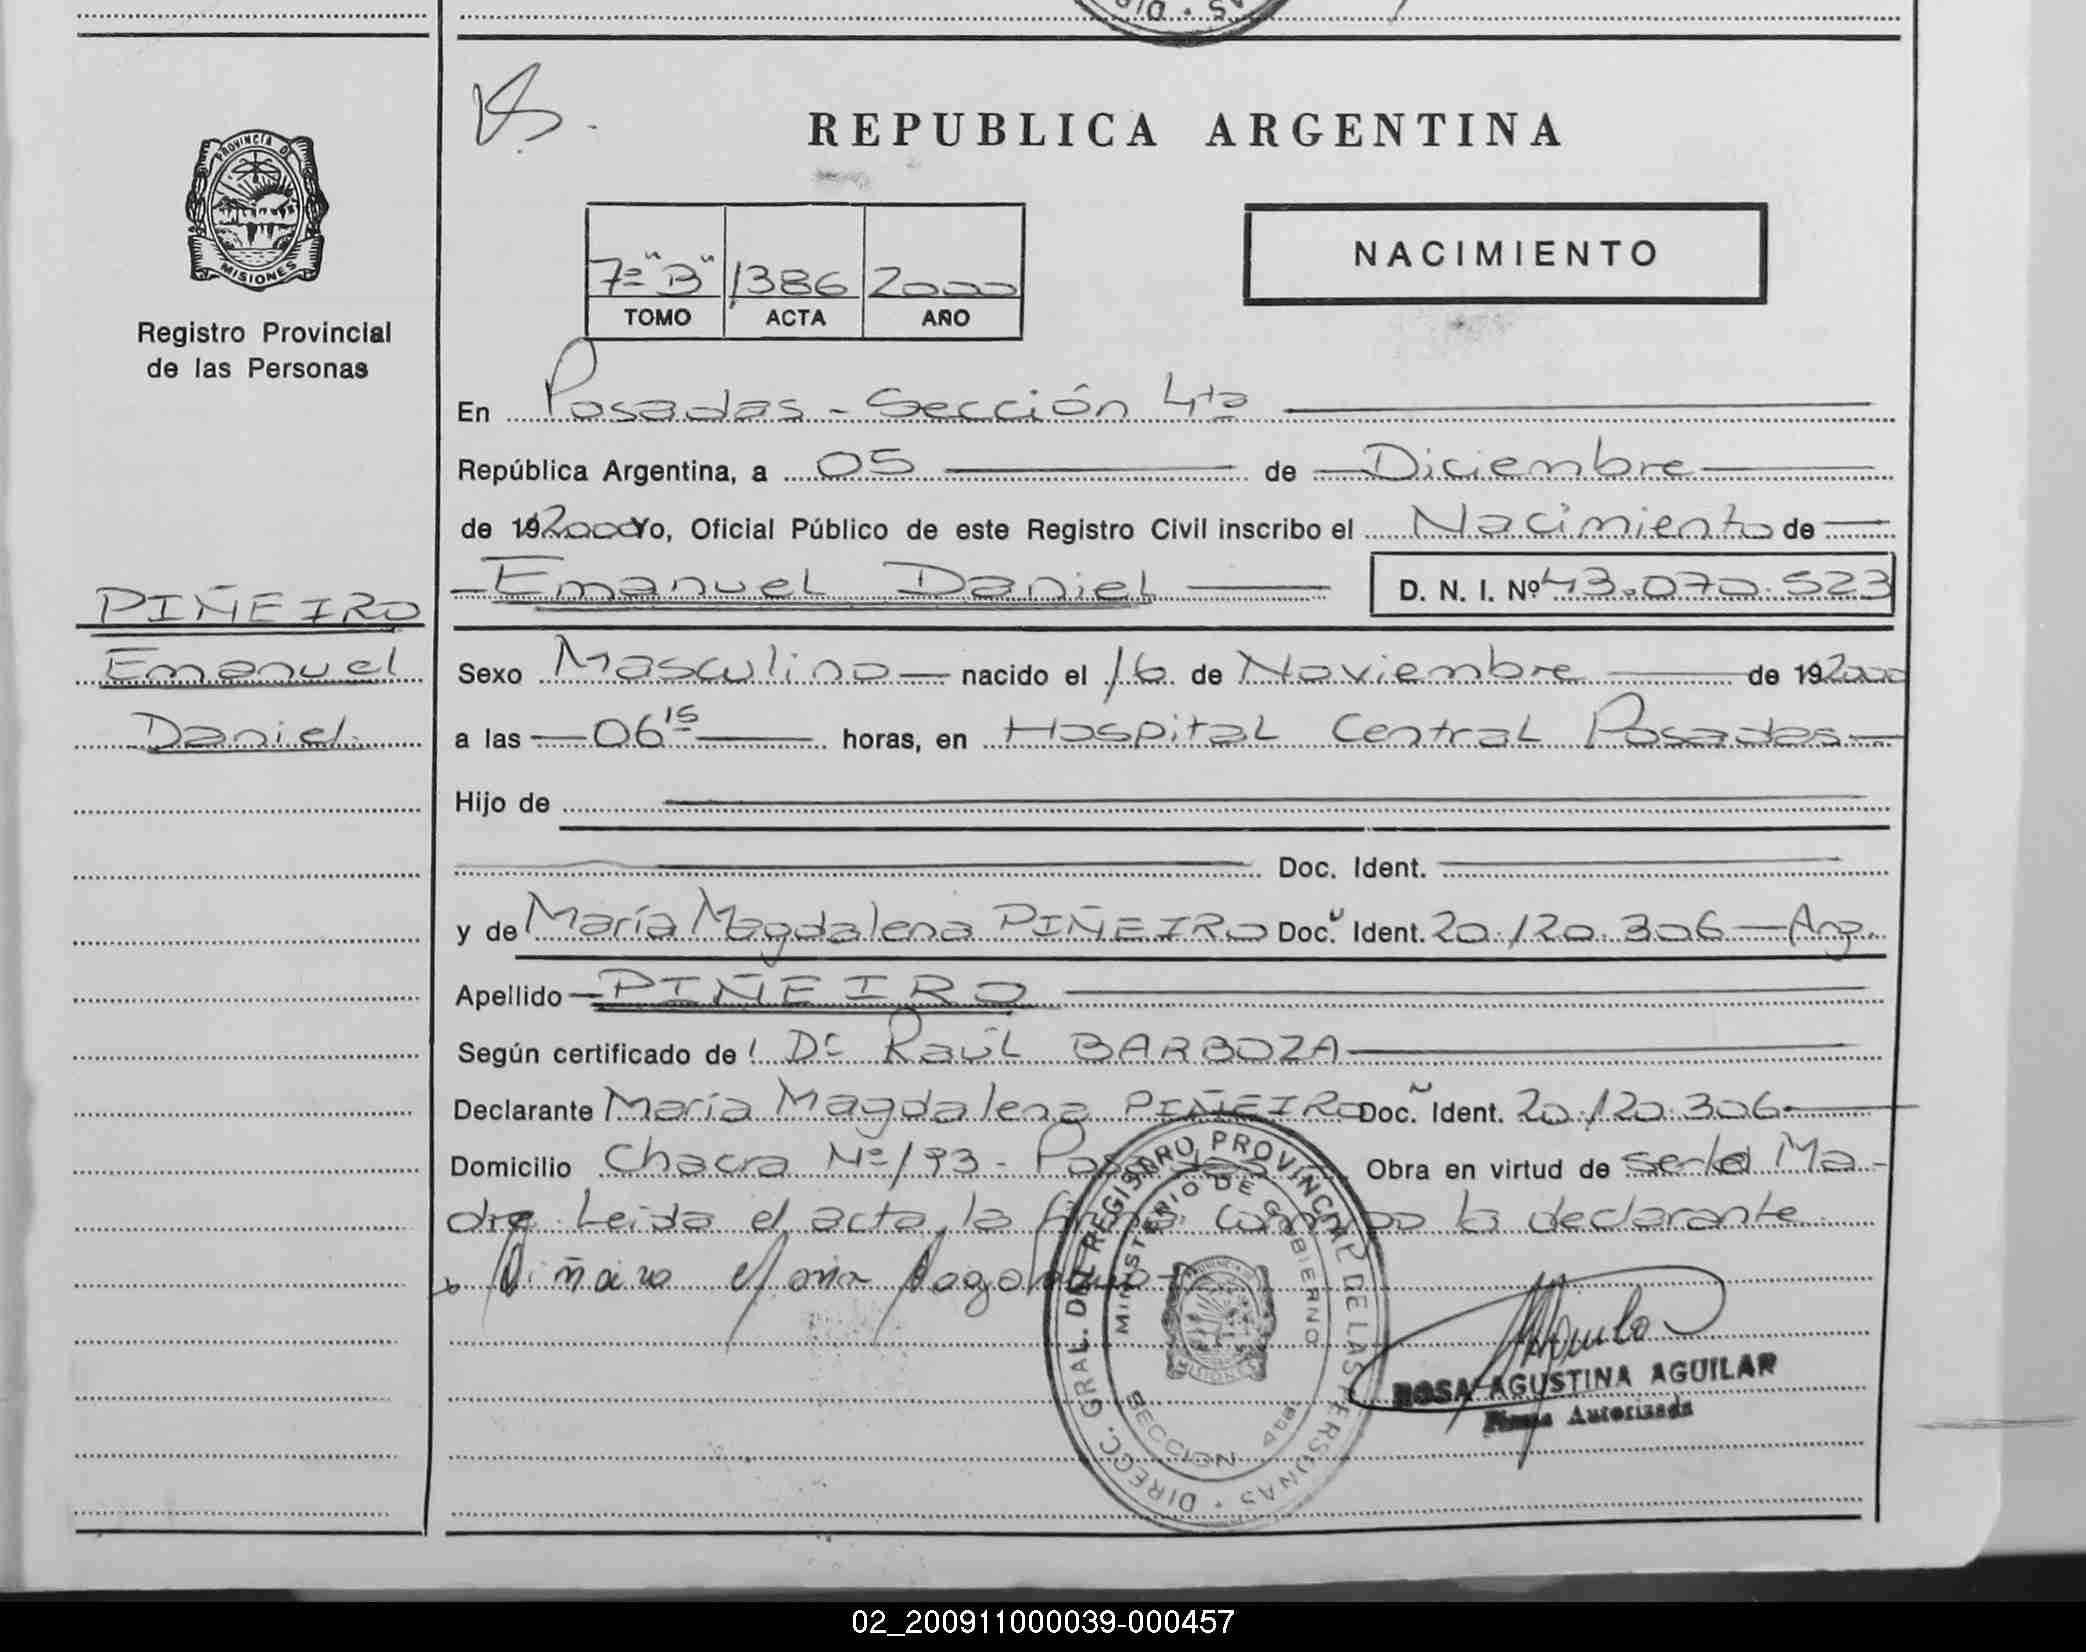 PROVINCIA DE
MISIONES
Registro Provincial
de las Personas
PIÑEIRO
Emanuel
Daniel
REPUBLICA ARGENTINA
7º "B" 1386 2000
TOMO ACTA AÑO
NACIMIENTO
En Posadas - Sección 4ta
República Argentina, a 05 de Diciembre
de 192000 Yo, Oficial Público de este Registro Civil inscribo el Nacimiento de
Emanuel Daniel D. N. I. Nº 43.070.523
Sexo Masculino nacido el 16 de Noviembre de 192000
a las 06 15 horas, en Hospital Central Posadas
Hijo de
Doc. Ident.
y de María Magdalena PIÑEIRO Doc. Ident. 20.120.306 - Arg.
Apellido PIÑEIRO
Según certificado de Dr Raúl BARBOZA
Declarante María Magdalena PIÑEIRO Doc. Ident. 20.120.306
Domicilio Chacra Nº 193 - Posadas Obra en virtud de ser la Ma-
dre. Leida el acta, la firma conmigo la declarante
Piñeiro Maria Magdalena
DIRECC. GRAL. DEL REGISTRO PROVINCIAL DE LAS PERSONAS
MINISTERIO DE GOBIERNO
SECCION 4ta.
ROSA AGUSTINA AGUILAR
Firma Autorizada
02_200911000039-000457